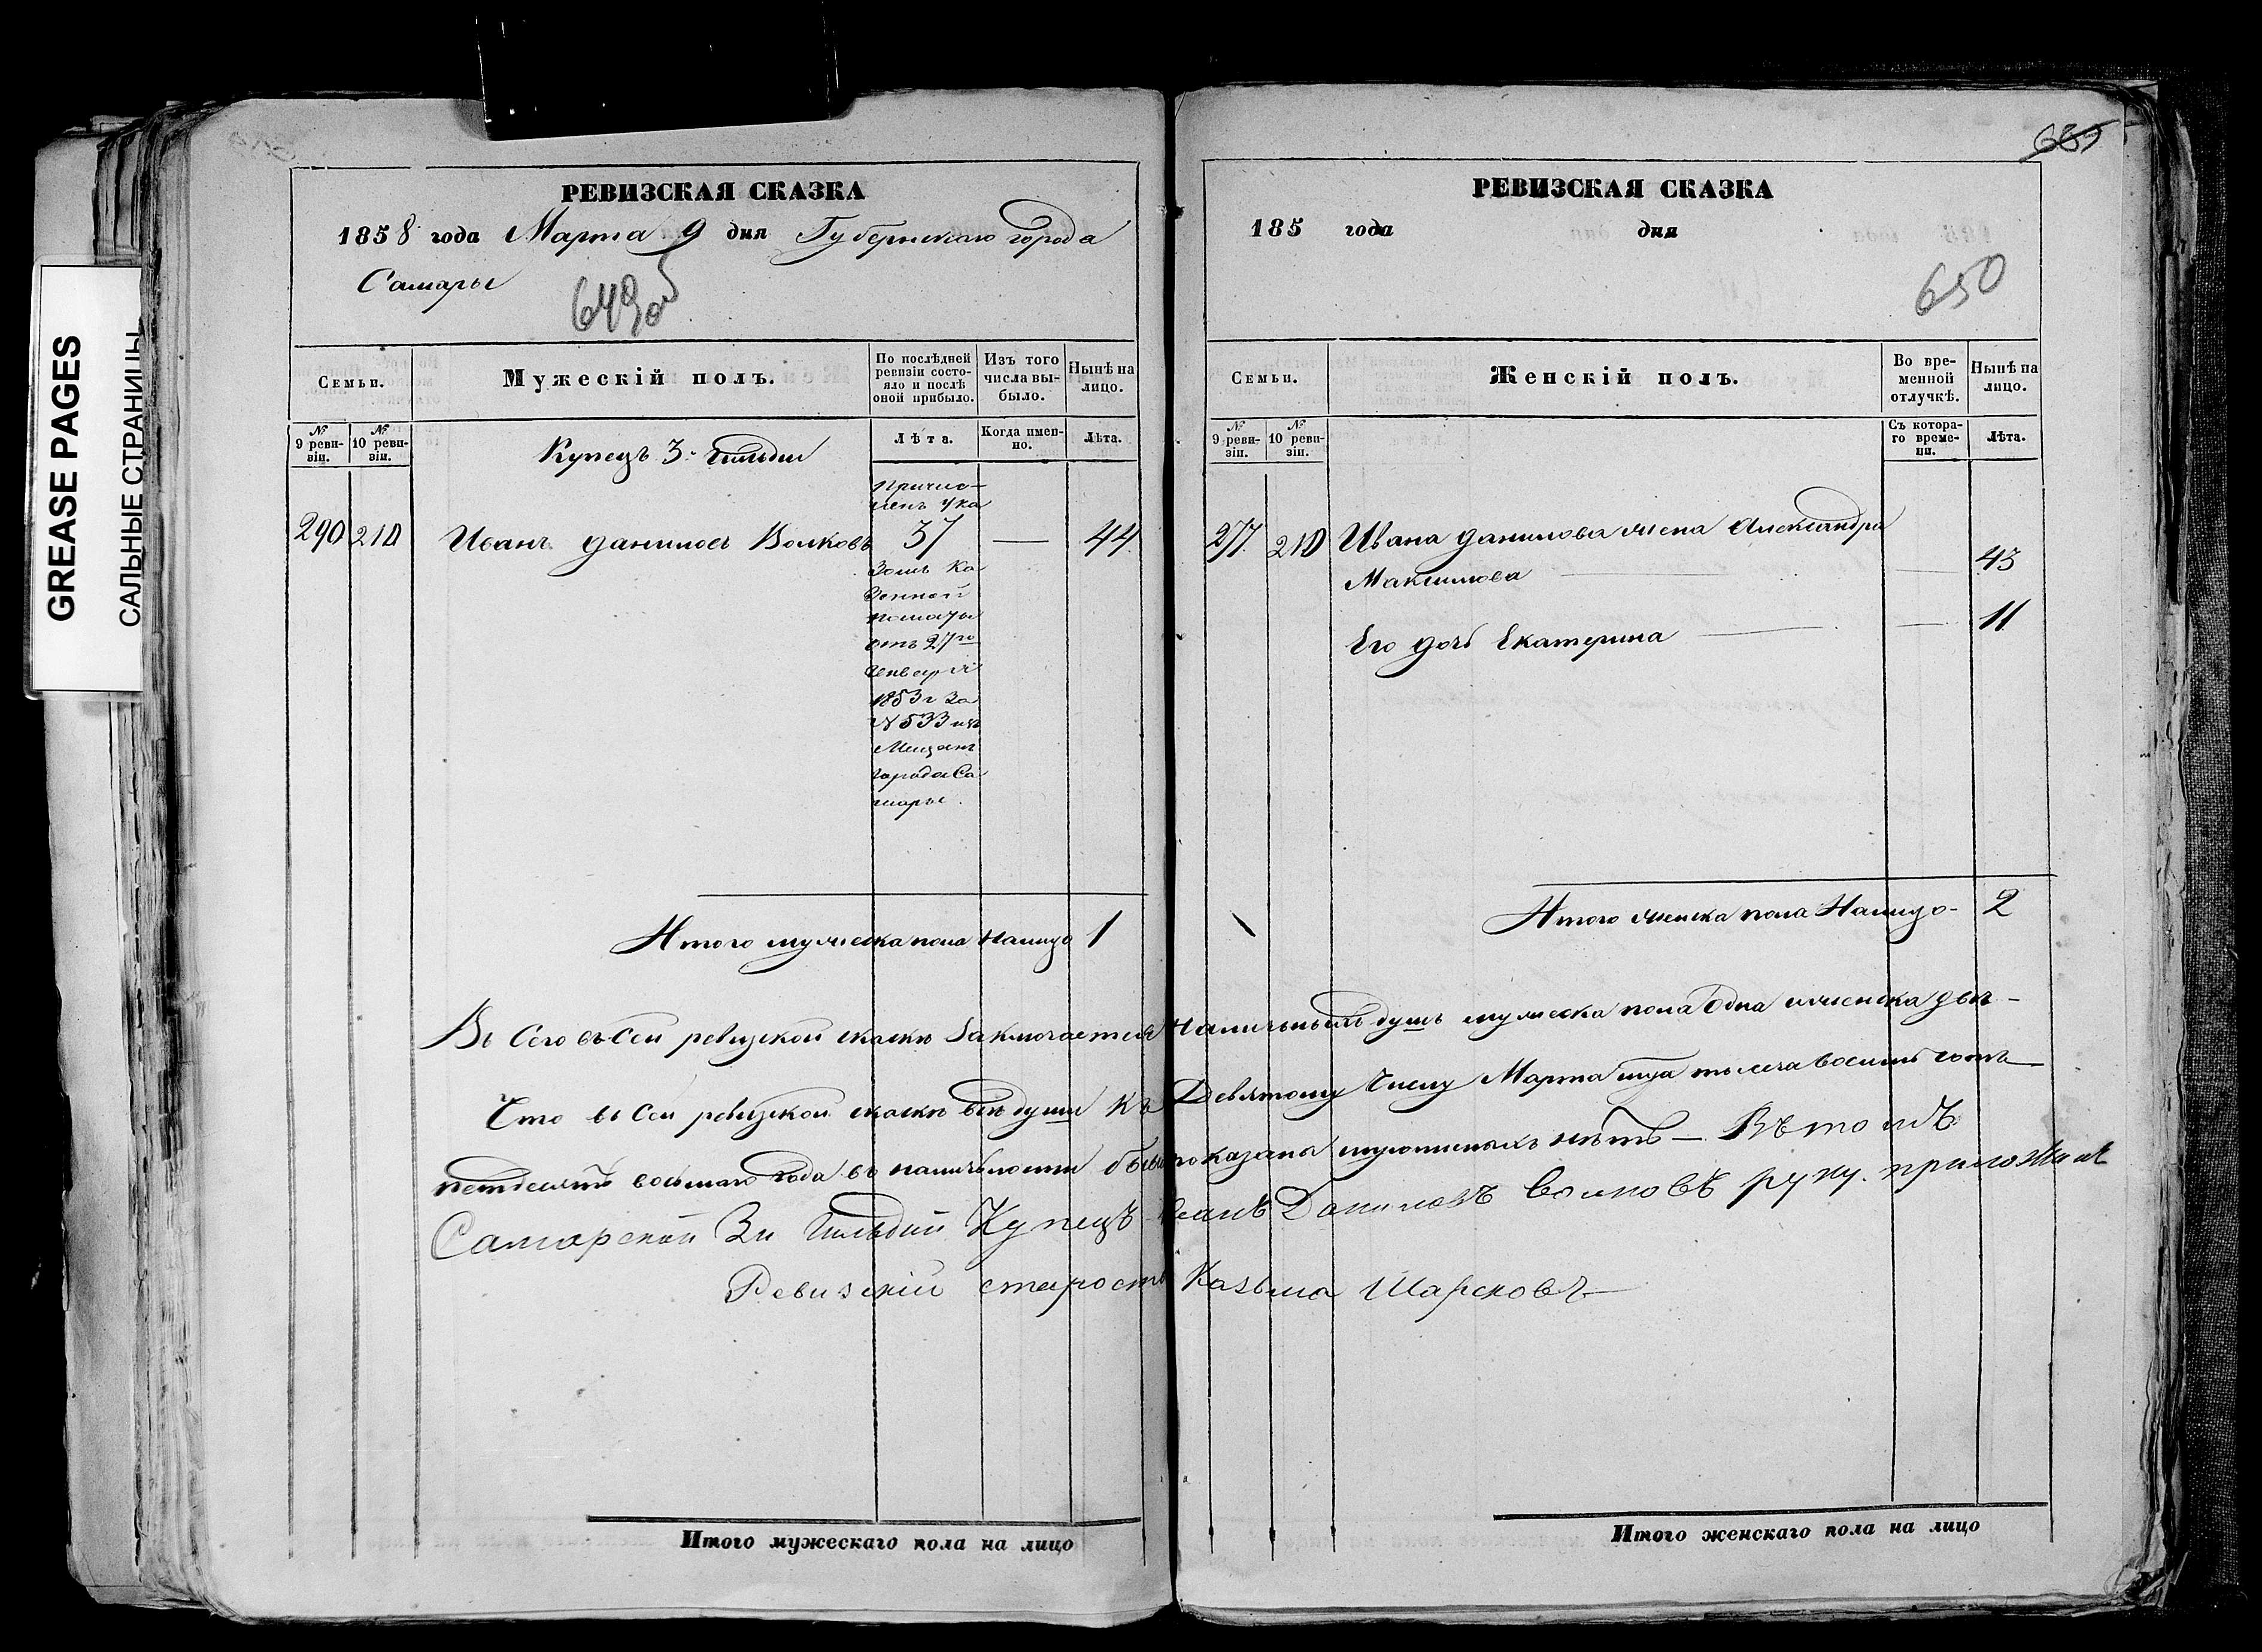 GREASE PAGES
САЛЬНЫЕ СТРАНИЦЫ
РЕВИЗСКАЯ СКАЗКА
1858 года Марта 9 дня Губернскаго города
Самары
649об
Семьи.
Мужескій полъ.
По послѣдней ревизіи состояло и послѣ оной прибыло.
Изъ того числа выбыло.
Нынѣ на лицо.
№ 9 ревизіи.
№ 10 ревизіи.
Купецъ 3. Гильдіи
Лѣта.
Когда именно.
Лѣта.
Причис-
ленъ Ука
290 210 Иванъ Даниловъ Волковъ 37 — 44
Зомъ Ка
зенной
палаты
отъ 27го
Генваря
1853 г за
№ 533 изъ
Мещанъ
города Са
мары.
Итого мужеска пола налицо 1
РЕВИЗСКАЯ СКАЗКА
185 года дня
650
Семьи.
Женскій полъ.
Во временной отлучкѣ.
Нынѣ на лицо.
№ 9 ревизіи.
№ 10 ревизіи.
Съ котораго времени.
Лѣта.
277 210 Ивана Данилова жена Александра
Максимова — 43
Его дочь Екатерина — 11
Итого женска пола Налицо - 2
Въ Сего въ сей ревизкой скаскѣ Заключается Наличныхъ душъ мужеска пола Одна и женска двѣ -
Что въ сей ревизкой скаскѣ всѣ души къ Девятому Числу Марта мца тысеча восимь сотъ
петдесятъ восьмаго года въ наличьности были показаны и упописныхъ нѣтъ — Въ томъ
Самарской 3й Гильдіи Купецъ Иванъ Даниловъ Волковъ руку приложилъ
Ревизскій староста Казьма Шарсковъ
Итого мужескаго пола на лицо
Итого женскаго пола на лицо